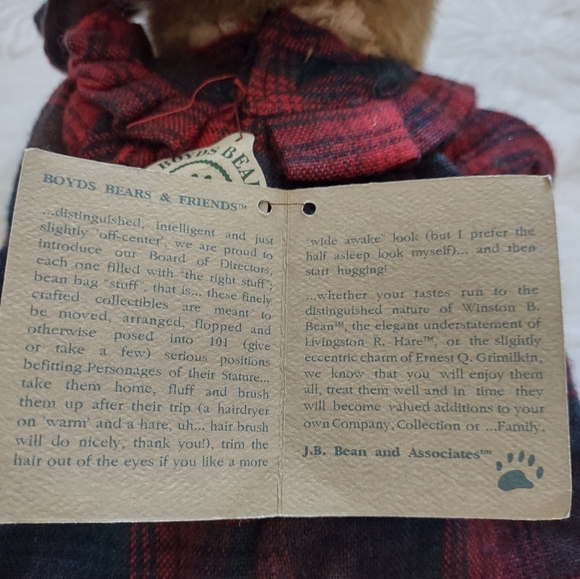 BOYDS BEAR
BOYDS BEARS & FRIENDS™
...distinguished, intelligent and just
slightly "off-center", we are proud to
introduce our Board of Directors,
each one filled with "the right stuff";
bean bag "stuff", that is... these finely
crafted collectibles are meant to
be moved, arranged, flopped and
otherwise posed into 101 (give
or take a few) serious positions
befitting Personages of their Stature...
take them home, fluff and brush
them up after their trip (a hairdryer
on 'warm' and a hare, uh... hair brush
will do nicely, thank you!), trim the
hair out of the eyes if you like a more
"wide awake" look (but I prefer the
half asleep look myself)... and then
start hugging!
...whether your tastes run to the
distinguished nature of Winston B.
Bean™, the elegant understatement of
Livingston R. Hare™, or the slightly
eccentric charm of Ernest Q. Grimilkin,
we know that you will enjoy them
all, treat them well and in time they
will become valued additions to your
own Company, Collection or ...Family.
J.B. Bean and Associates™